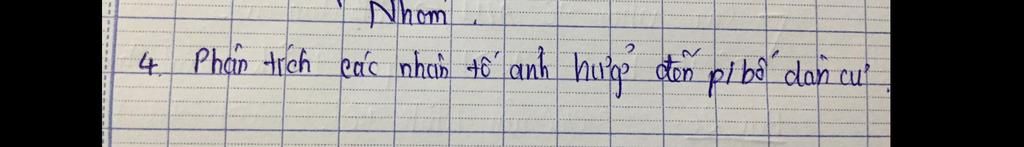 Nhóm.
4. Phân tích các nhân tố ảnh hưởng đến p/bố dân cư.